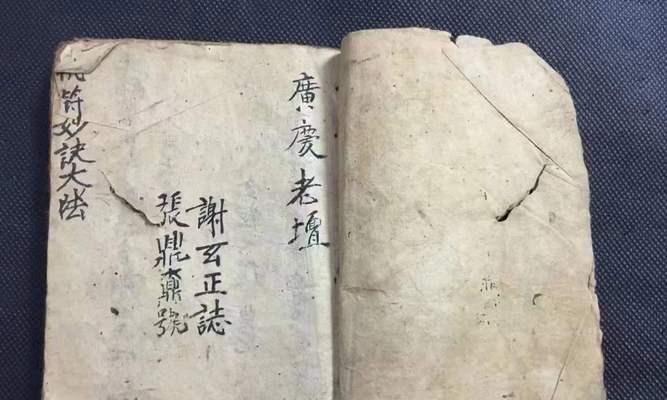 廣慶老壇
謝玄正誌
張鼎鼐號
符妙訣大法